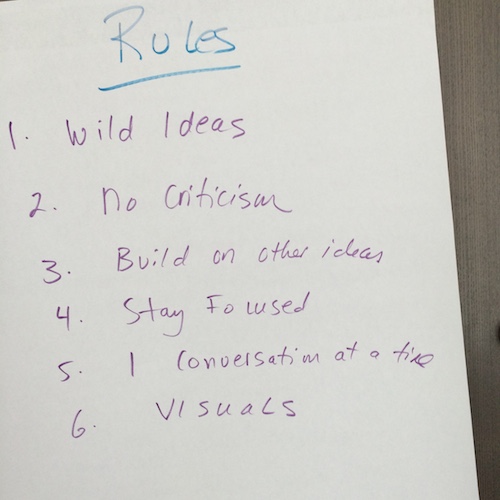 Rules
1. Wild Ideas
2. no criticism
3. Build on other ideas
4. Stay Focused
5. 1 Conversation at a time
6. VISUALS